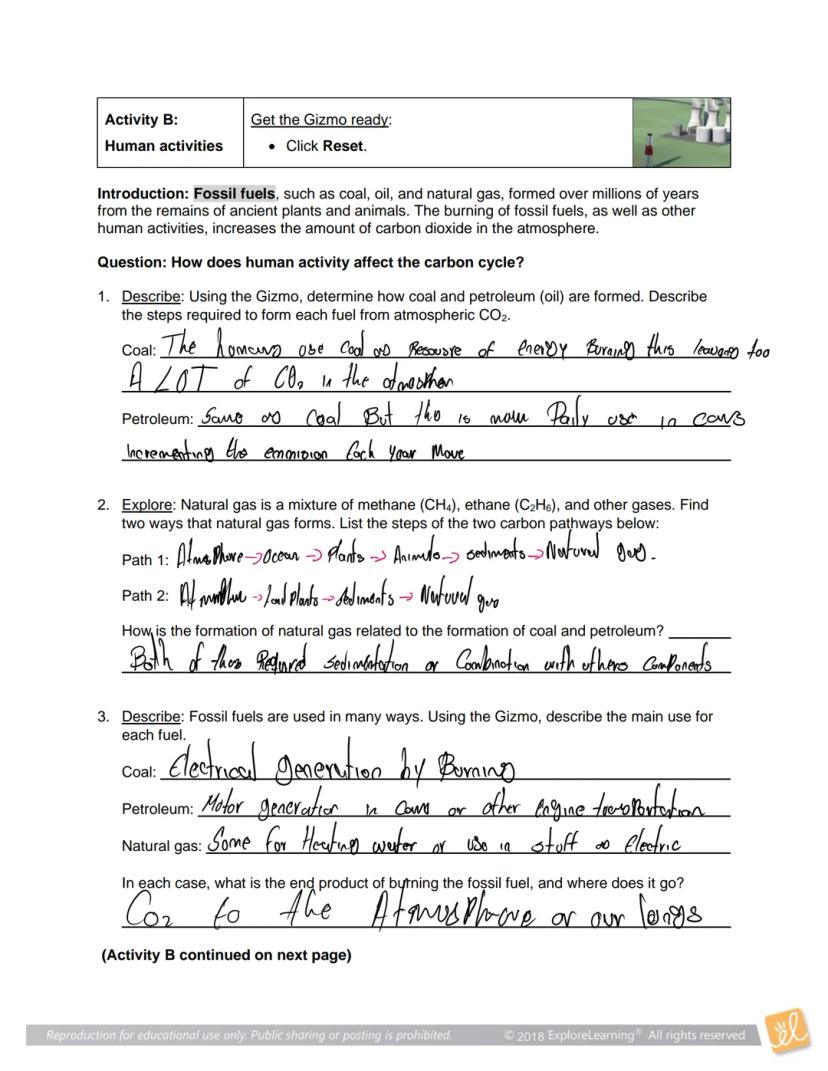 Activity B:
Human activities
Get the Gizmo ready:
• Click Reset.
Introduction: Fossil fuels, such as coal, oil, and natural gas, formed over millions of years
from the remains of ancient plants and animals. The burning of fossil fuels, as well as other
human activities, increases the amount of carbon dioxide in the atmosphere.
Question: How does human activity affect the carbon cycle?
1. Describe: Using the Gizmo, determine how coal and petroleum (oil) are formed. Describe
the steps required to form each fuel from atmospheric CO₂.
Coal: The humans use Coal as Resourse of energy Burning this leaving too
A LOT of CO₂ in the
Petroleum: Same as Coal But this is more Daily use in cars
Incrementing the emmision Each year More
2. Explore: Natural gas is a mixture of methane (CH₄), ethane (C₂H₆), and other gases. Find
two ways that natural gas forms. List the steps of the two carbon pathways below:
Path 1: Atmosphere → Ocean → Plants → Animals → sediments → Natural gas.
Path 2: → Land Plants → sediments → Natural gas
How is the formation of natural gas related to the formation of coal and petroleum?
Both of thos Required sedimentation or Combination with others Components
3. Describe: Fossil fuels are used in many ways. Using the Gizmo, describe the main use for
each fuel.
Coal: Electrical generation by Burning
Petroleum: Motor generation in Cars or other Engine
Natural gas: Some for Heating water or use in stuff as Electric
In each case, what is the end product of burning the fossil fuel, and where does it go?
CO₂ to the Atmosphere or our
(Activity B continued on next page)
Reproduction for educational use only. Public sharing or posting is prohibited. © 2018 ExploreLearning® All rights reserved